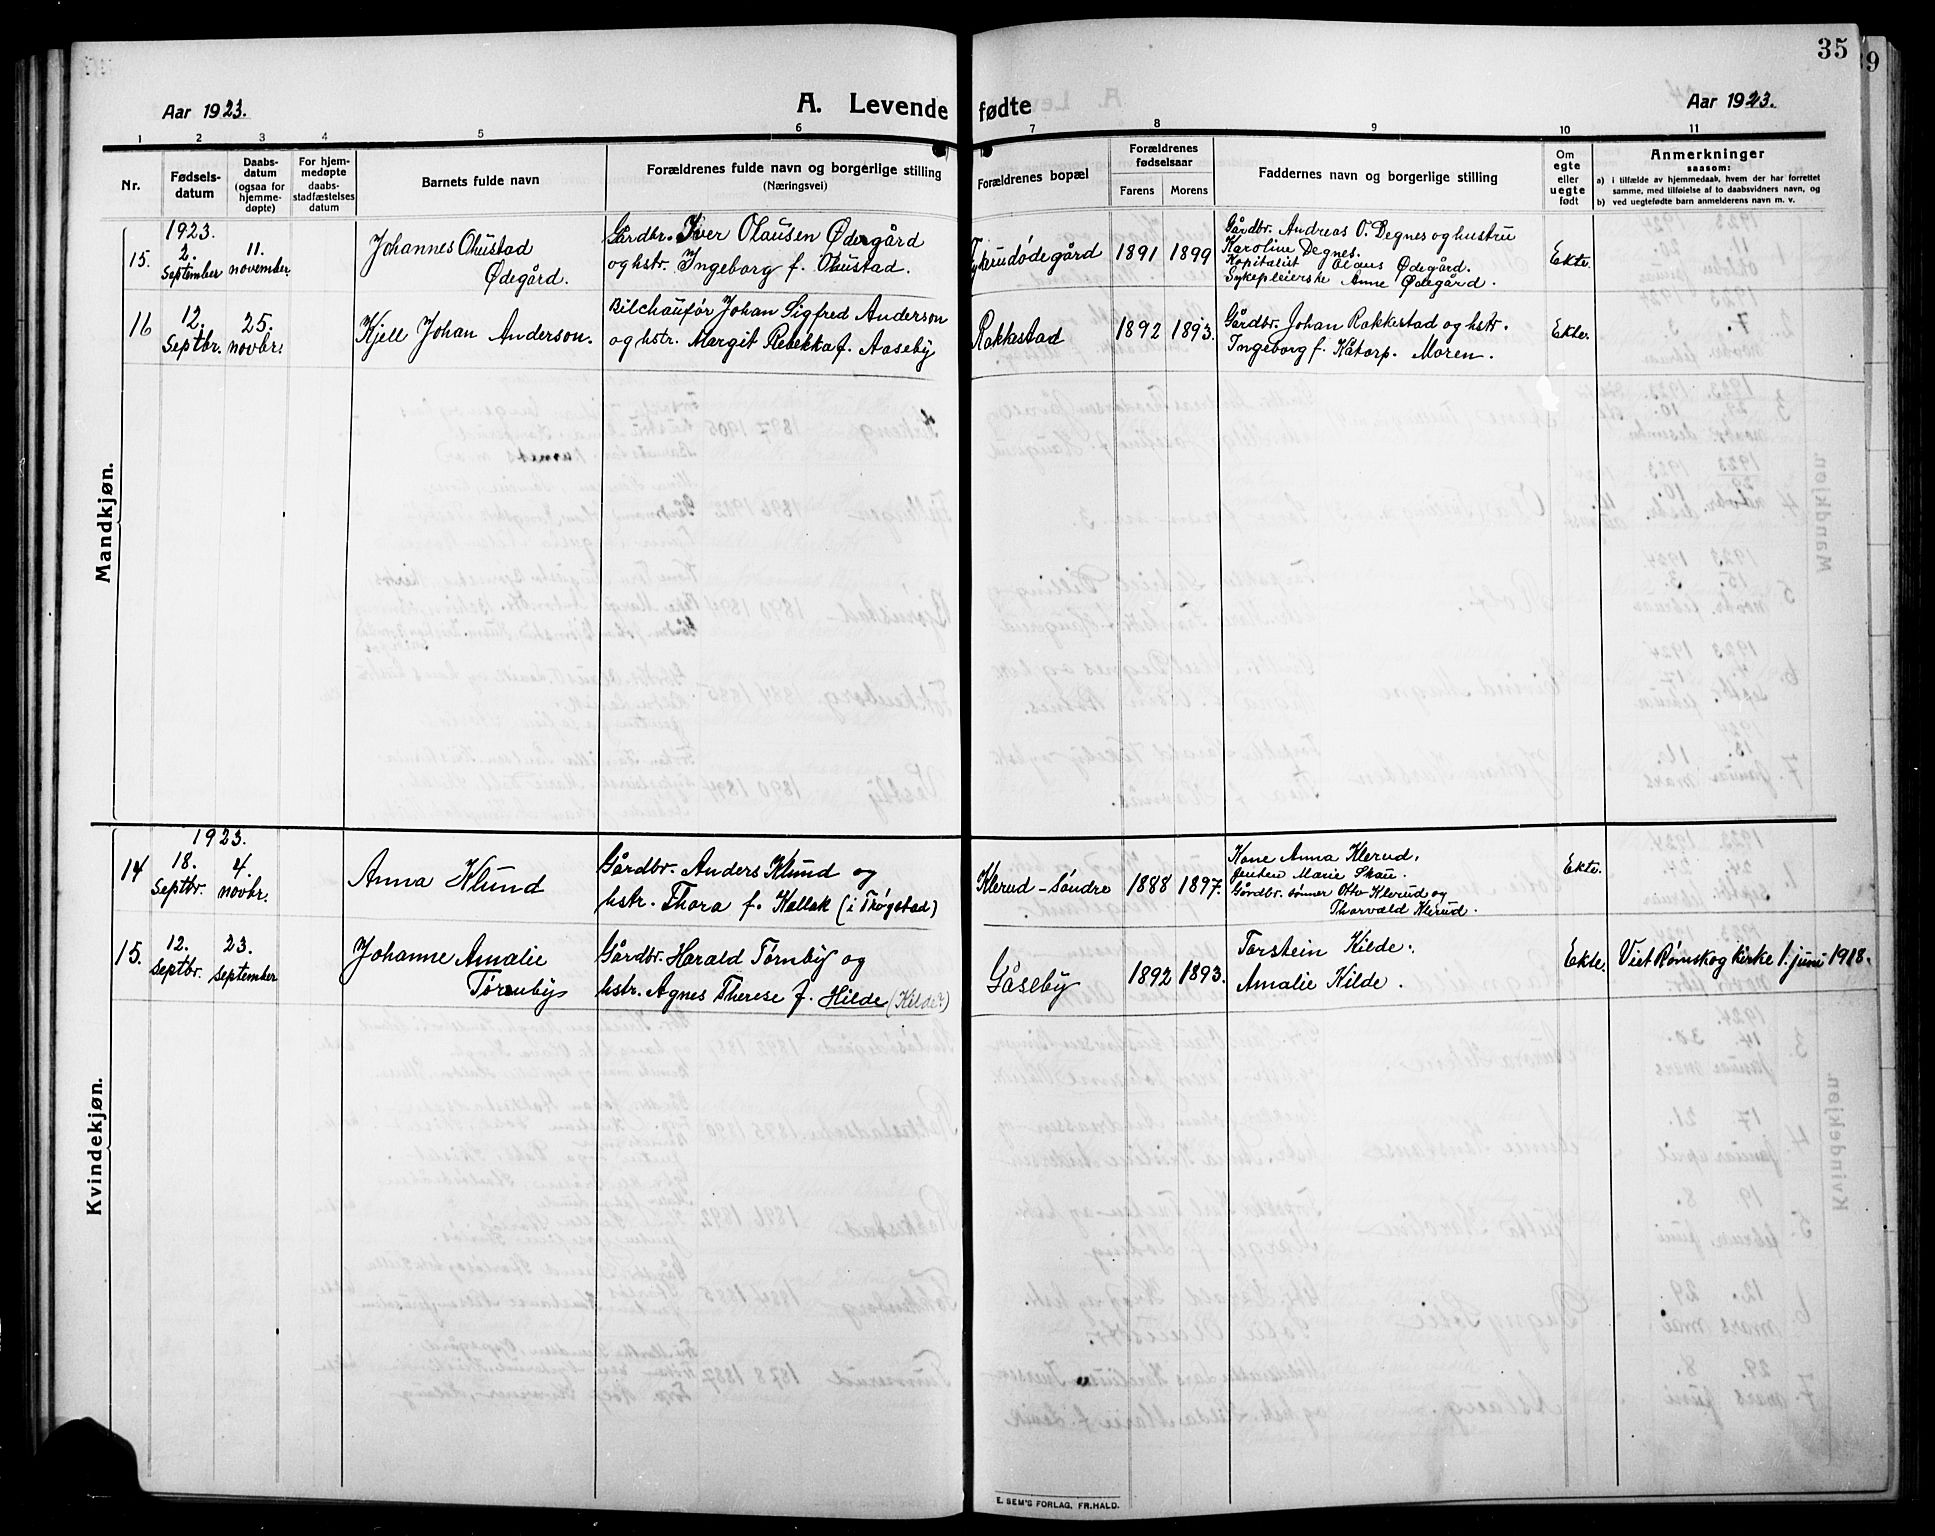 35
Aar 1923.
A. Levende fødte
Aar 1923.
1 2 3 4 5 6 7 8 9 10 11
Nr.
Fødsels-
datum
Daabs-
datum
(ogsaa for
hjemme-
døpte)
For hjem-
medøpte
daabs-
stadfæstelses
datum
Barnets fulde navn
Forældrenes fulde navn og borgerlige stilling
(Næringsvei)
Forældrenes bopæl
Forældrenes
fødselsaar
Farens Morens
Faddernes navn og borgerlige stilling
Om
egte
eller
uegte
født
Anmerkninger
saasom:
a) i tilfælde av hjemmedaab, hvem der har forrettet
samme, med tilføielse af to daabsvidners navn, og
b) ved uegtefødte barn anmelderens navn m. v.
Mandkjøn.
1923.
15.
2.
September
11.
november.
Johannes Ohustad
Ødegård.
Gårdbr. Iver Olausen Ødegård
og hstr. Ingeborg f. Ohustad.
Tykerudødegård
1891 1899
Gårdbr. Andreas O. Degnes og hustru
Karoline Degnes.
Kapitalist Olaus Ødegård.
Sykepleierske Anne Ødegård.
Ekte.
16
12.
Septbr.
25.
novbr.
Kjell Johan Anderson.
Bilchauffør Johan Sigfred Anderson
og hstr. Margit Rebekka f. Aaseby
Rakkestad
1892 1893.
Gårdbr. Johan Rakkestad og hstr.
Ingeborg f. Kåtorp. Moren.
Ekte.
Kvindekjøn.
1923.
14
18.
Septbr.
4.
novbr.
Anna Klund
Gårdbr. Anders Klund og
hstr. Thora f. Kallak (i Trøgstad)
Klerud-søndre
1888 1897.
Kone Anna Klerud.
Jenten Marie Skau.
Gårdbr. sønner Otto Klerud og
Thorvald Klerud.
Ekte.
15.
12.
Septbr.
23.
September
Johanne Amalie
Tørnby
Gårdbr. Harald Tørnby og
hstr. Agnes Therese f. Hilde (Kilde)
Gåseby
1892 1893.
Torstein Kilde.
Amalie Kilde.
Ekte.
Viet Rømskog kirke 1. juni 1918.
E. SEM'S FORLAG, FR.HALD.